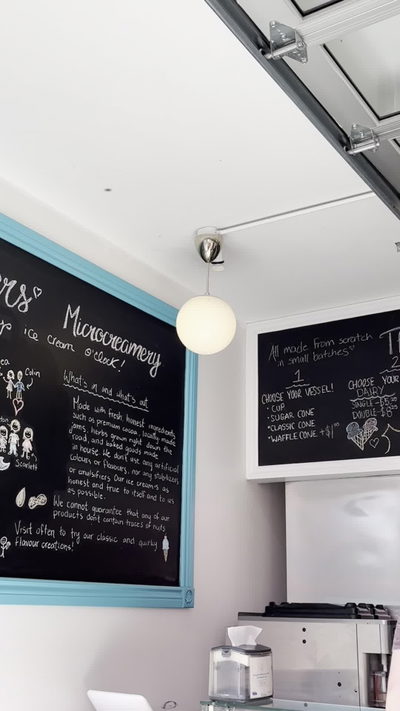 Microcreamery
ice cream o'clock!
Colin
Scarlett
What's in and what's out
Made with fresh honest ingredients
such as premium cocoa, locally made
jams, herbs grown right down the
road, and baked goods made
in house. We don't use any artificial
colours or flavours, nor any stabilizers
or emulsifiers. Our ice creams as
honest and true to itself and to us
as possible.
We cannot guarantee that any of our
products don't contain traces of nuts
Visit often to try our classic and quirky
flavour creations!
All made from scratch
in small batches
1
CHOOSE YOUR VESSEL!
• CUP
• SUGAR CONE
• CLASSIC CONE
• WAFFLE CONE +$1
2
CHOOSE YOUR
DAIRY